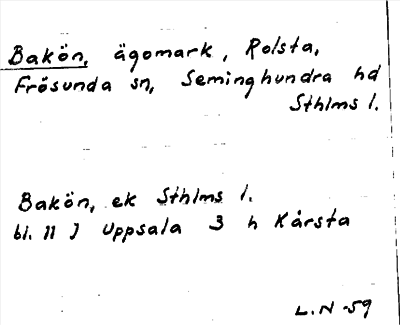 Bakön, ägomark, Rolsta,
Frösunda sn, Seminghundra hd
Sthlms l.
Bakön, ek Sthlms l.
bl. 11 J Uppsala 3 h Kårsta
L.N -59